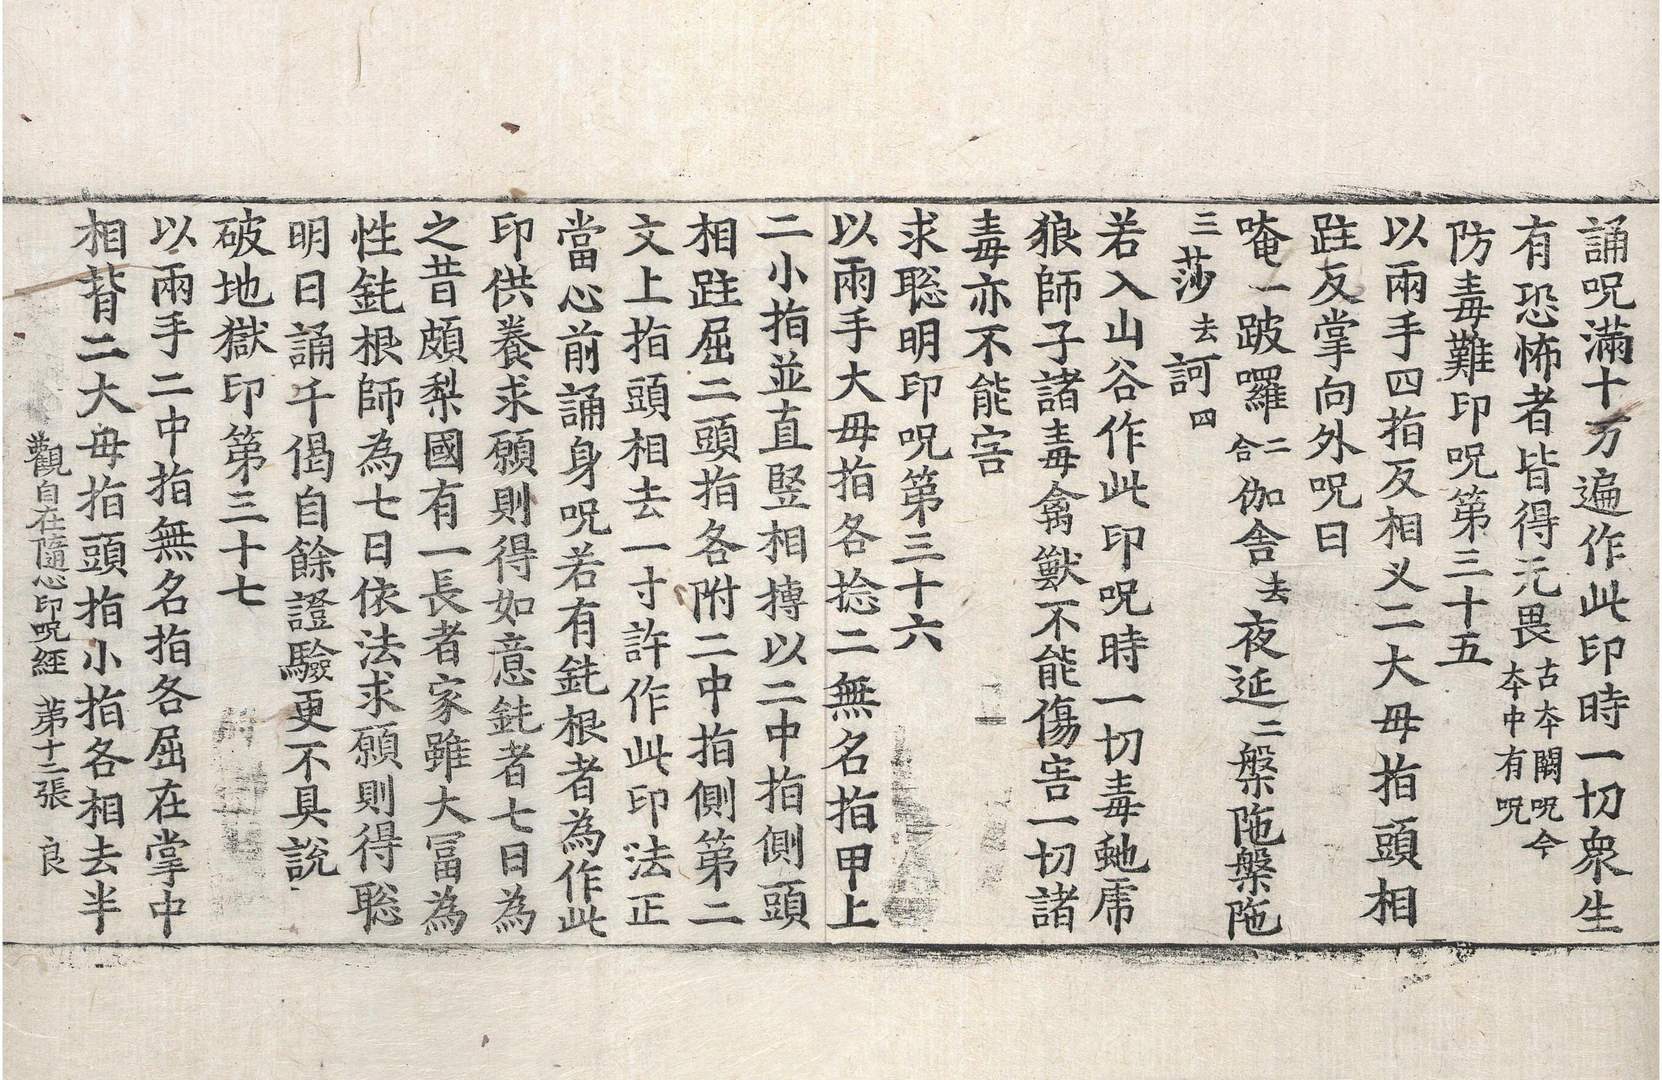 誦呪滿十万遍作此印時一切衆生
有恐怖者皆得无畏古夲闕呪今夲中有呪
防毒難印呪第三十五
以兩手四指反相叉二大毋指頭相
跓反掌向外呪曰
唵一跛囉二合伽舍去夜延二槃陁槃陁
三莎去訶四
若入山谷作此印呪時一切毒虵虎
狼師子諸毒禽獸不能傷害一切諸
毒亦不能害
求聡明印呪第三十六
以兩手大毋指各捻二無名指甲上
二小指並直竪相摶以二中指側頭
相跓屈二頭指各附二中指側第二
文上指頭相去一寸許作此印法正
當心前誦身呪若有鈍根者為作此
印供養求願則得如意鈍者七日為
之昔頗梨國有一長者家雖大冨為
性鈍根師為七日依法求願則得聡
明日誦千偈自餘證驗更不具說
破地獄印第三十七
以兩手二中指無名指各屈在掌中
相背二大毋指頭指小指各相去半
觀自在隨心印呪經 第十二張 良